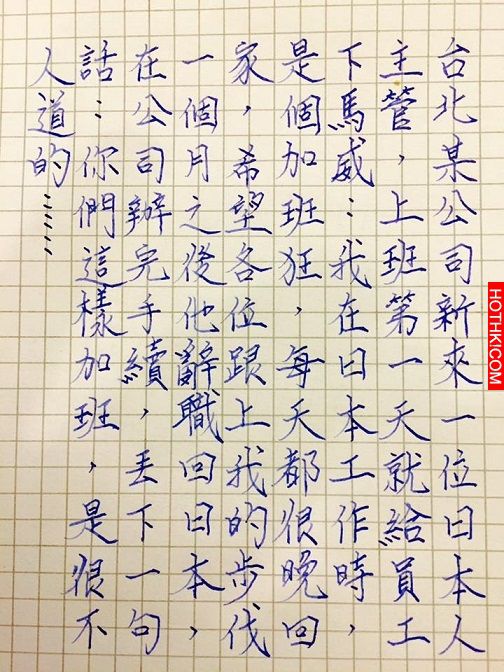 台北某公司新來一位日本人
主管，上班第一天就給員工
下馬威：我在日本工作時，
是個加班狂，每天都很晚回
家，希望各位跟上我的步伐
一個月之後他辭職回日本，
在公司辦完手續，丟下一句
話：你們這樣加班，是很不
人道的⋯⋯
HOTHK!COM